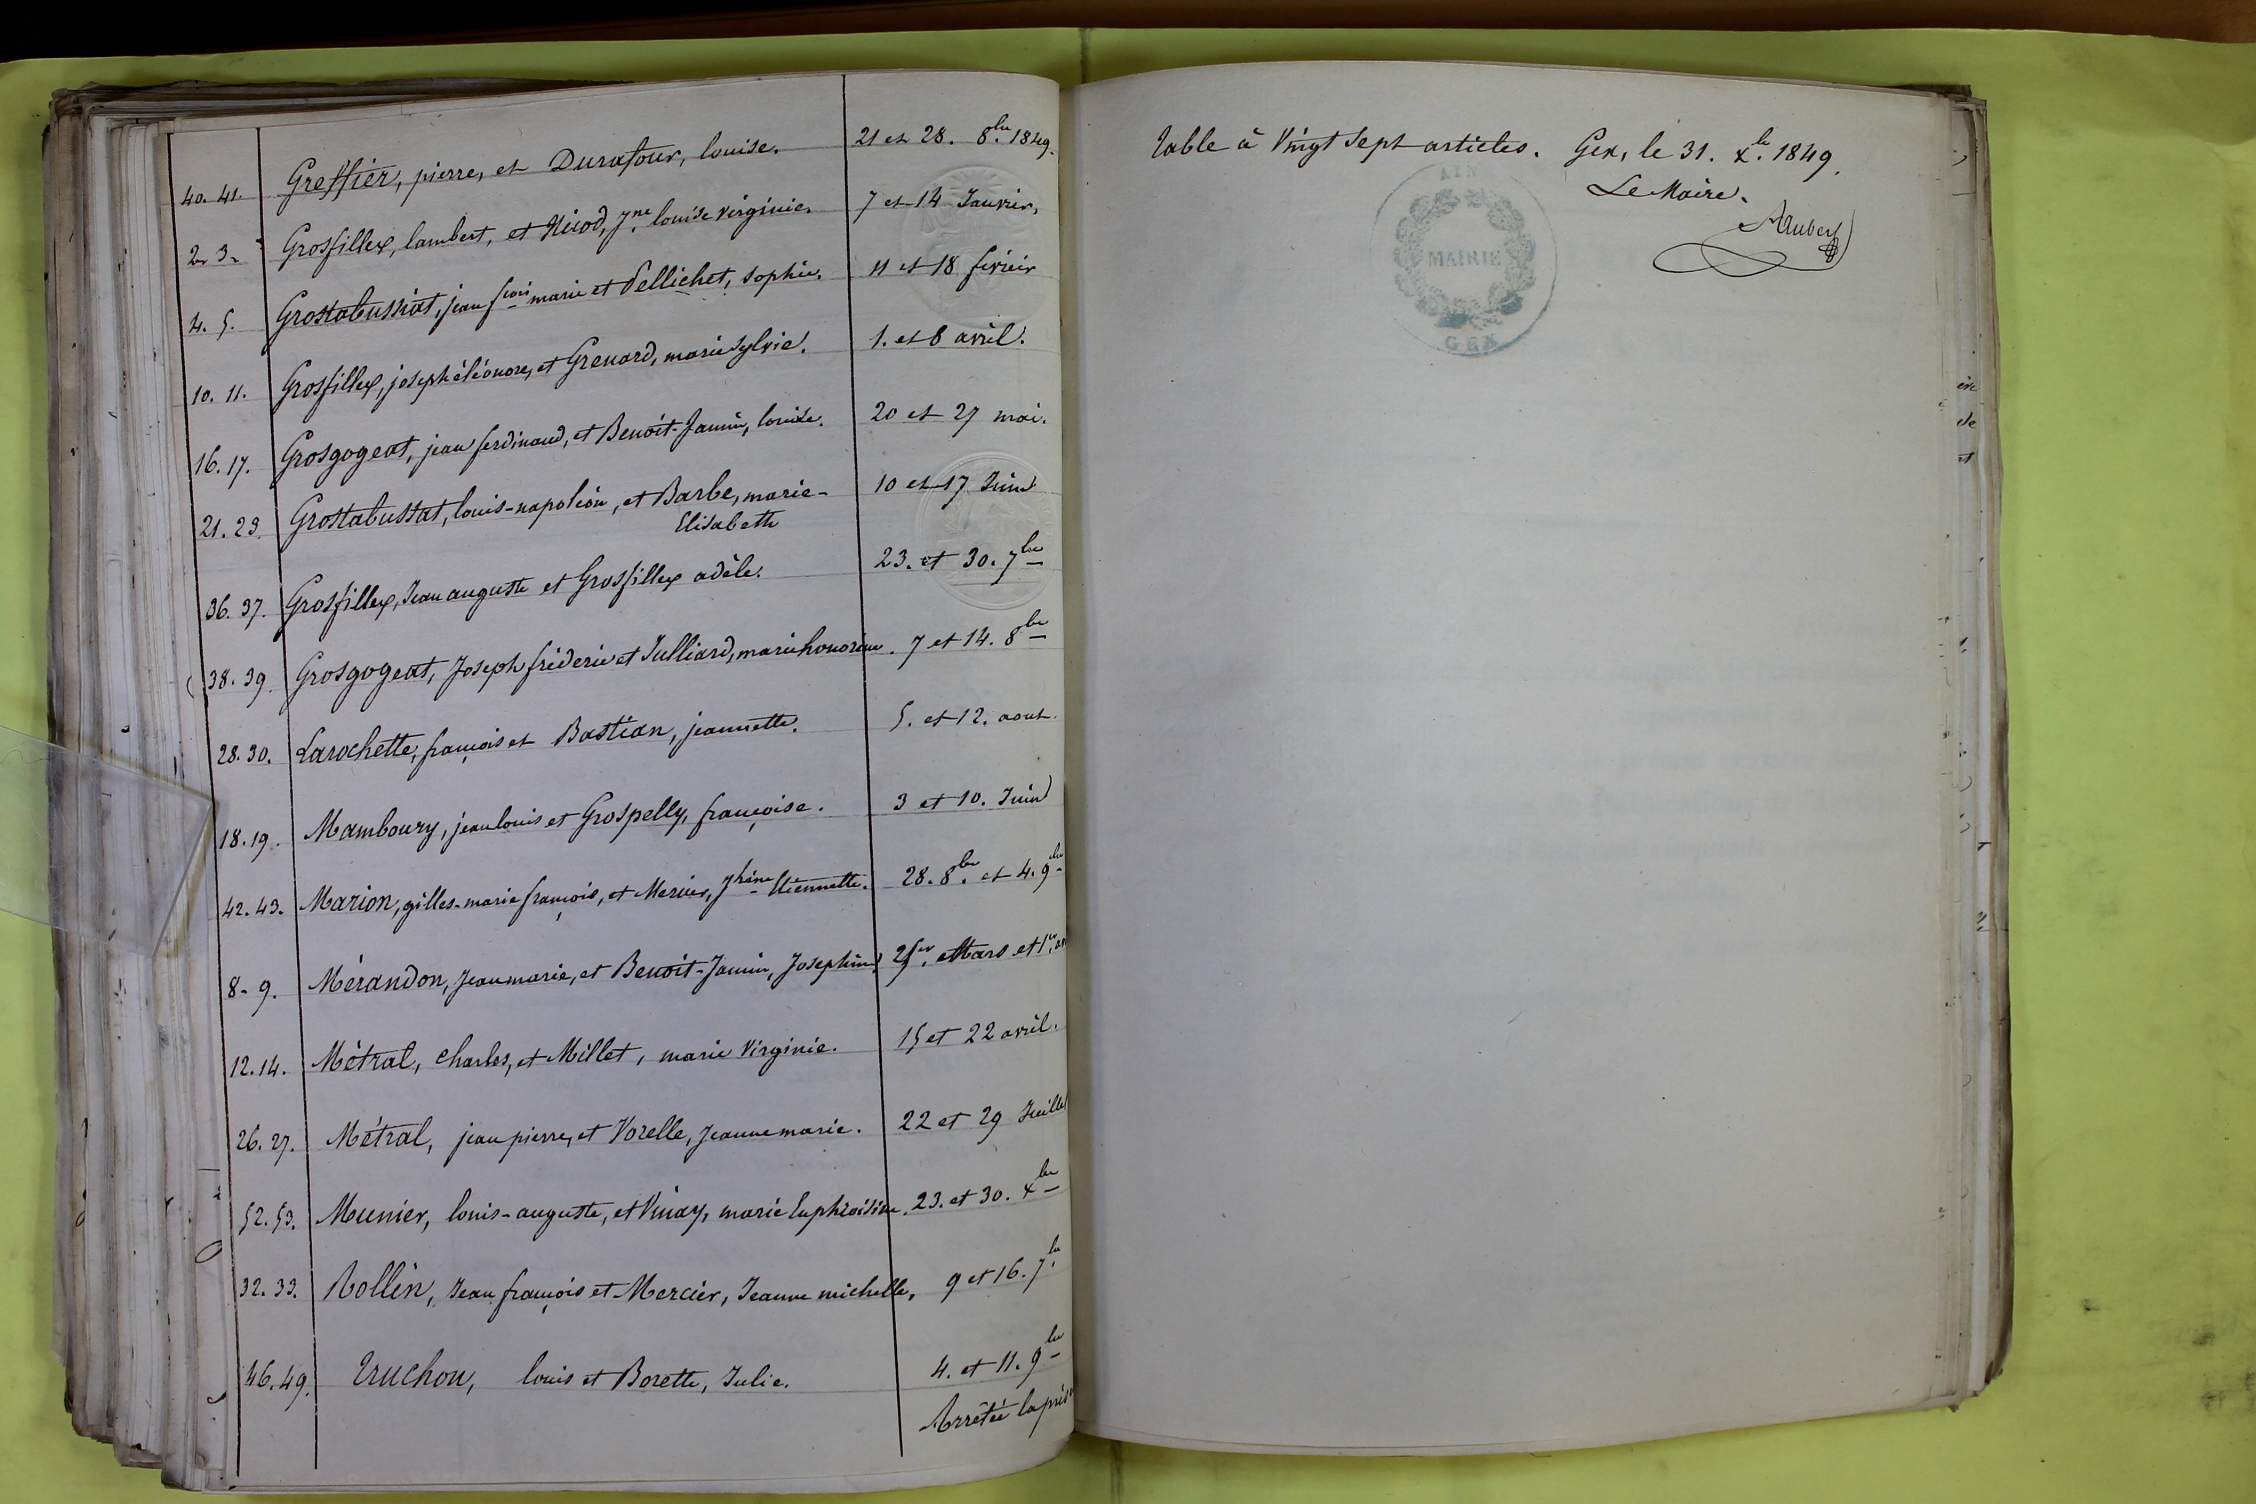 40. 41. Greffier, pierre, et Durafour, louise. 21 et 28. 8bre 1849.
2. 3. Grosfillex, lambert, et Nicod, Jne. louise virginie. 7 et 14 Janvier,
4. 5. Grostabussiat, jean fcois marie et Pellichet, sophie. 11 et 18 février
10. 11. Grosfillex, joseph éléonore, et Grenard, marie sylvie. 1. et 8 avril.
16. 17. Grosgogeat, jean ferdinand, et Benoit-Jannin, louise. 20 et 27 mai.
21. 23. Grostabussat, louis-napoléon, et Barbe, marie- 10 et 17 Juin
Elisabeth
36. 37. Grosfillex, Jean auguste et Grosfillex adèle. 23. et 30. 7bre
38. 39. Grosgogeat, Joseph fréderic et Julliard, marie honorine. 7 et 14. 8bre
28. 30. Larochette, françois et Bastian, jeannette. 5. et 12. aout.
18. 19. Mamboury, jean louis et Grospelly, françoise. 3 et 10. Juin
42. 43. Marion, gilles-marie françois, et Mercier, Jhine Etiennette. 28. 8bre. et 4. 9bre
8. 9. Mérandon, Jean marie, et Benoit-Jannin, Josephine 25 Mars et 1er. av
12. 14. Métral, charles, et Millet, marie Virginie. 15 et 22 avril.
26. 27. Métral, jean pierre, et Vorelle, Jeanne marie. 22 et 29 Juillet
52. 53. Meunier, louis-auguste, et Vinay, marie Euphroisine. 23. et 30. xbre
32. 33. Rollin, Jean françois et Mercier, Jeanne michelle, 9 et 16. 7bre
46. 49. Truchon, louis et Borette, Julie. 4. et 11. 9bre
Arrêtée la prés
table à Vingt Sept articles. Gex, le 31. xbre. 1849.
Le Maire.
AIN
MAIRIE
GEX